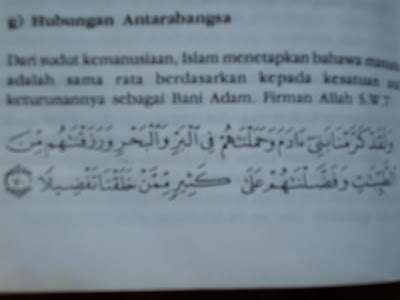 g) Hubungan Antarabangsa
Dari sudut kemanusiaan, Islam menetapkan bahawa
adalah sama rata berdasarkan kepada kesatuan
keturunannya sebagai Bani Adam. Firman Allah S.W.T
وَلَقَدْ كَرَّمْنَا بَنِىٓ ءَادَمَ وَحَمَلْنَٰهُمْ فِى ٱلْبَرِّ وَٱلْبَحْرِ وَرَزَقْنَٰهُم مِّنَ
ٱلطَّيِّبَٰتِ وَفَضَّلْنَٰهُمْ عَلَىٰ كَثِيرٍ مِّمَّنْ خَلَقْنَا تَفْضِيلًا